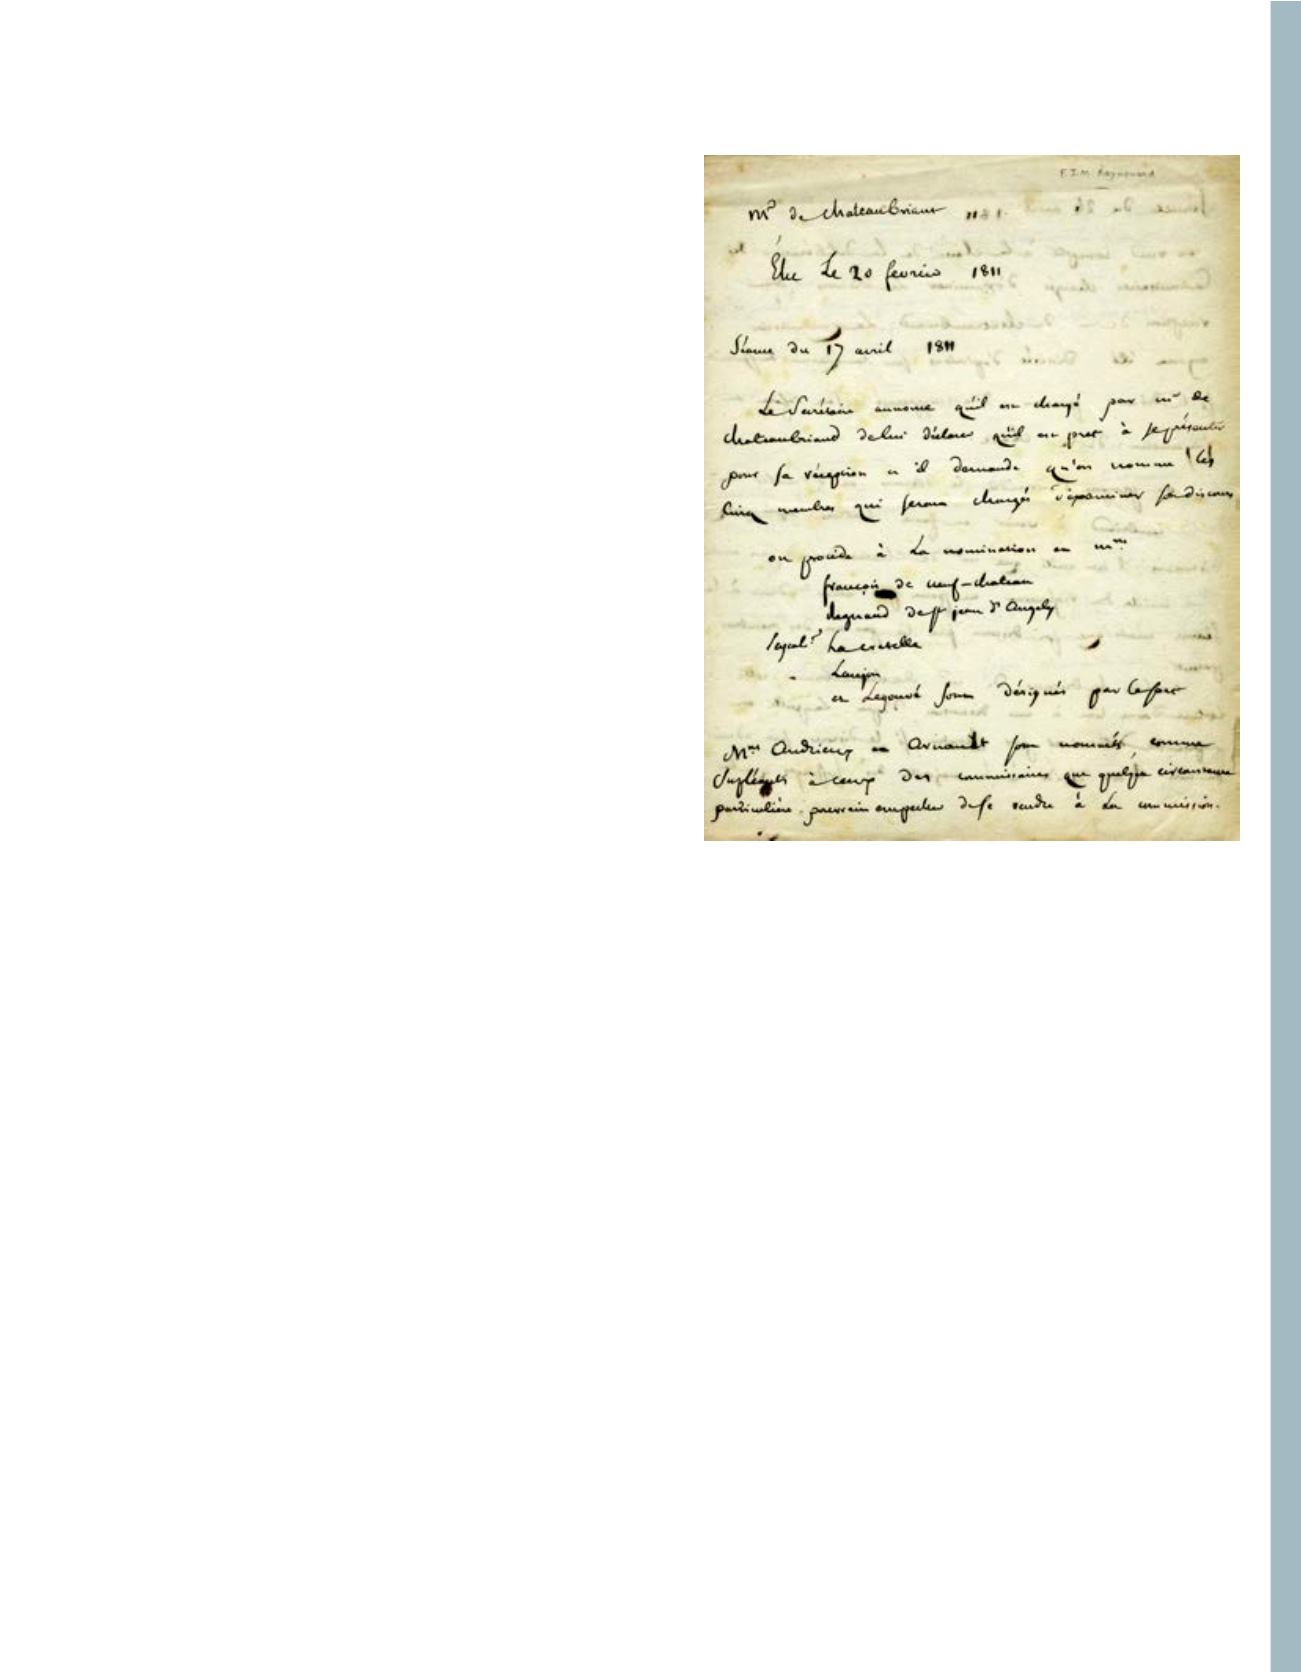 F.J.M. Raynouard
Mr de chateaubriant 1811
Élu Le 20 fevrier 1811
Séance du 17 avril 1811
Le Secrétaire annonce qu'il est chargé par mr de
chateaubriand de lui déclarer qu'il est pret à se présenter
pour sa réception et il demande qu'on nomme les
cinq membres qui seront chargés d'examiner son discours
on procède à La nomination et mrs
françois de neuf-chateau
regnaud de st jean d'Angely
Lacretelle
Laujon
et Legouvé sont désignés par le sort
Mrs Andrieux et Arnault sont nommés comme
supléants à ceux des commissaires que quelque circonstance
particulière pourrait empecher de se rendre à La commission.